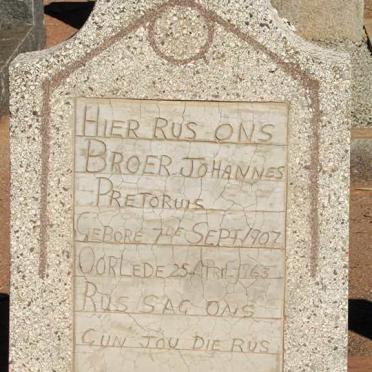 HIER RUS ONS
BROER JOHANNES
PRETORUIS
GEBORE 7DE SEPT. 1907
OORLEDE 25 APRIL 1963
RUS SAG ONS
GUN JOU DIE RUS